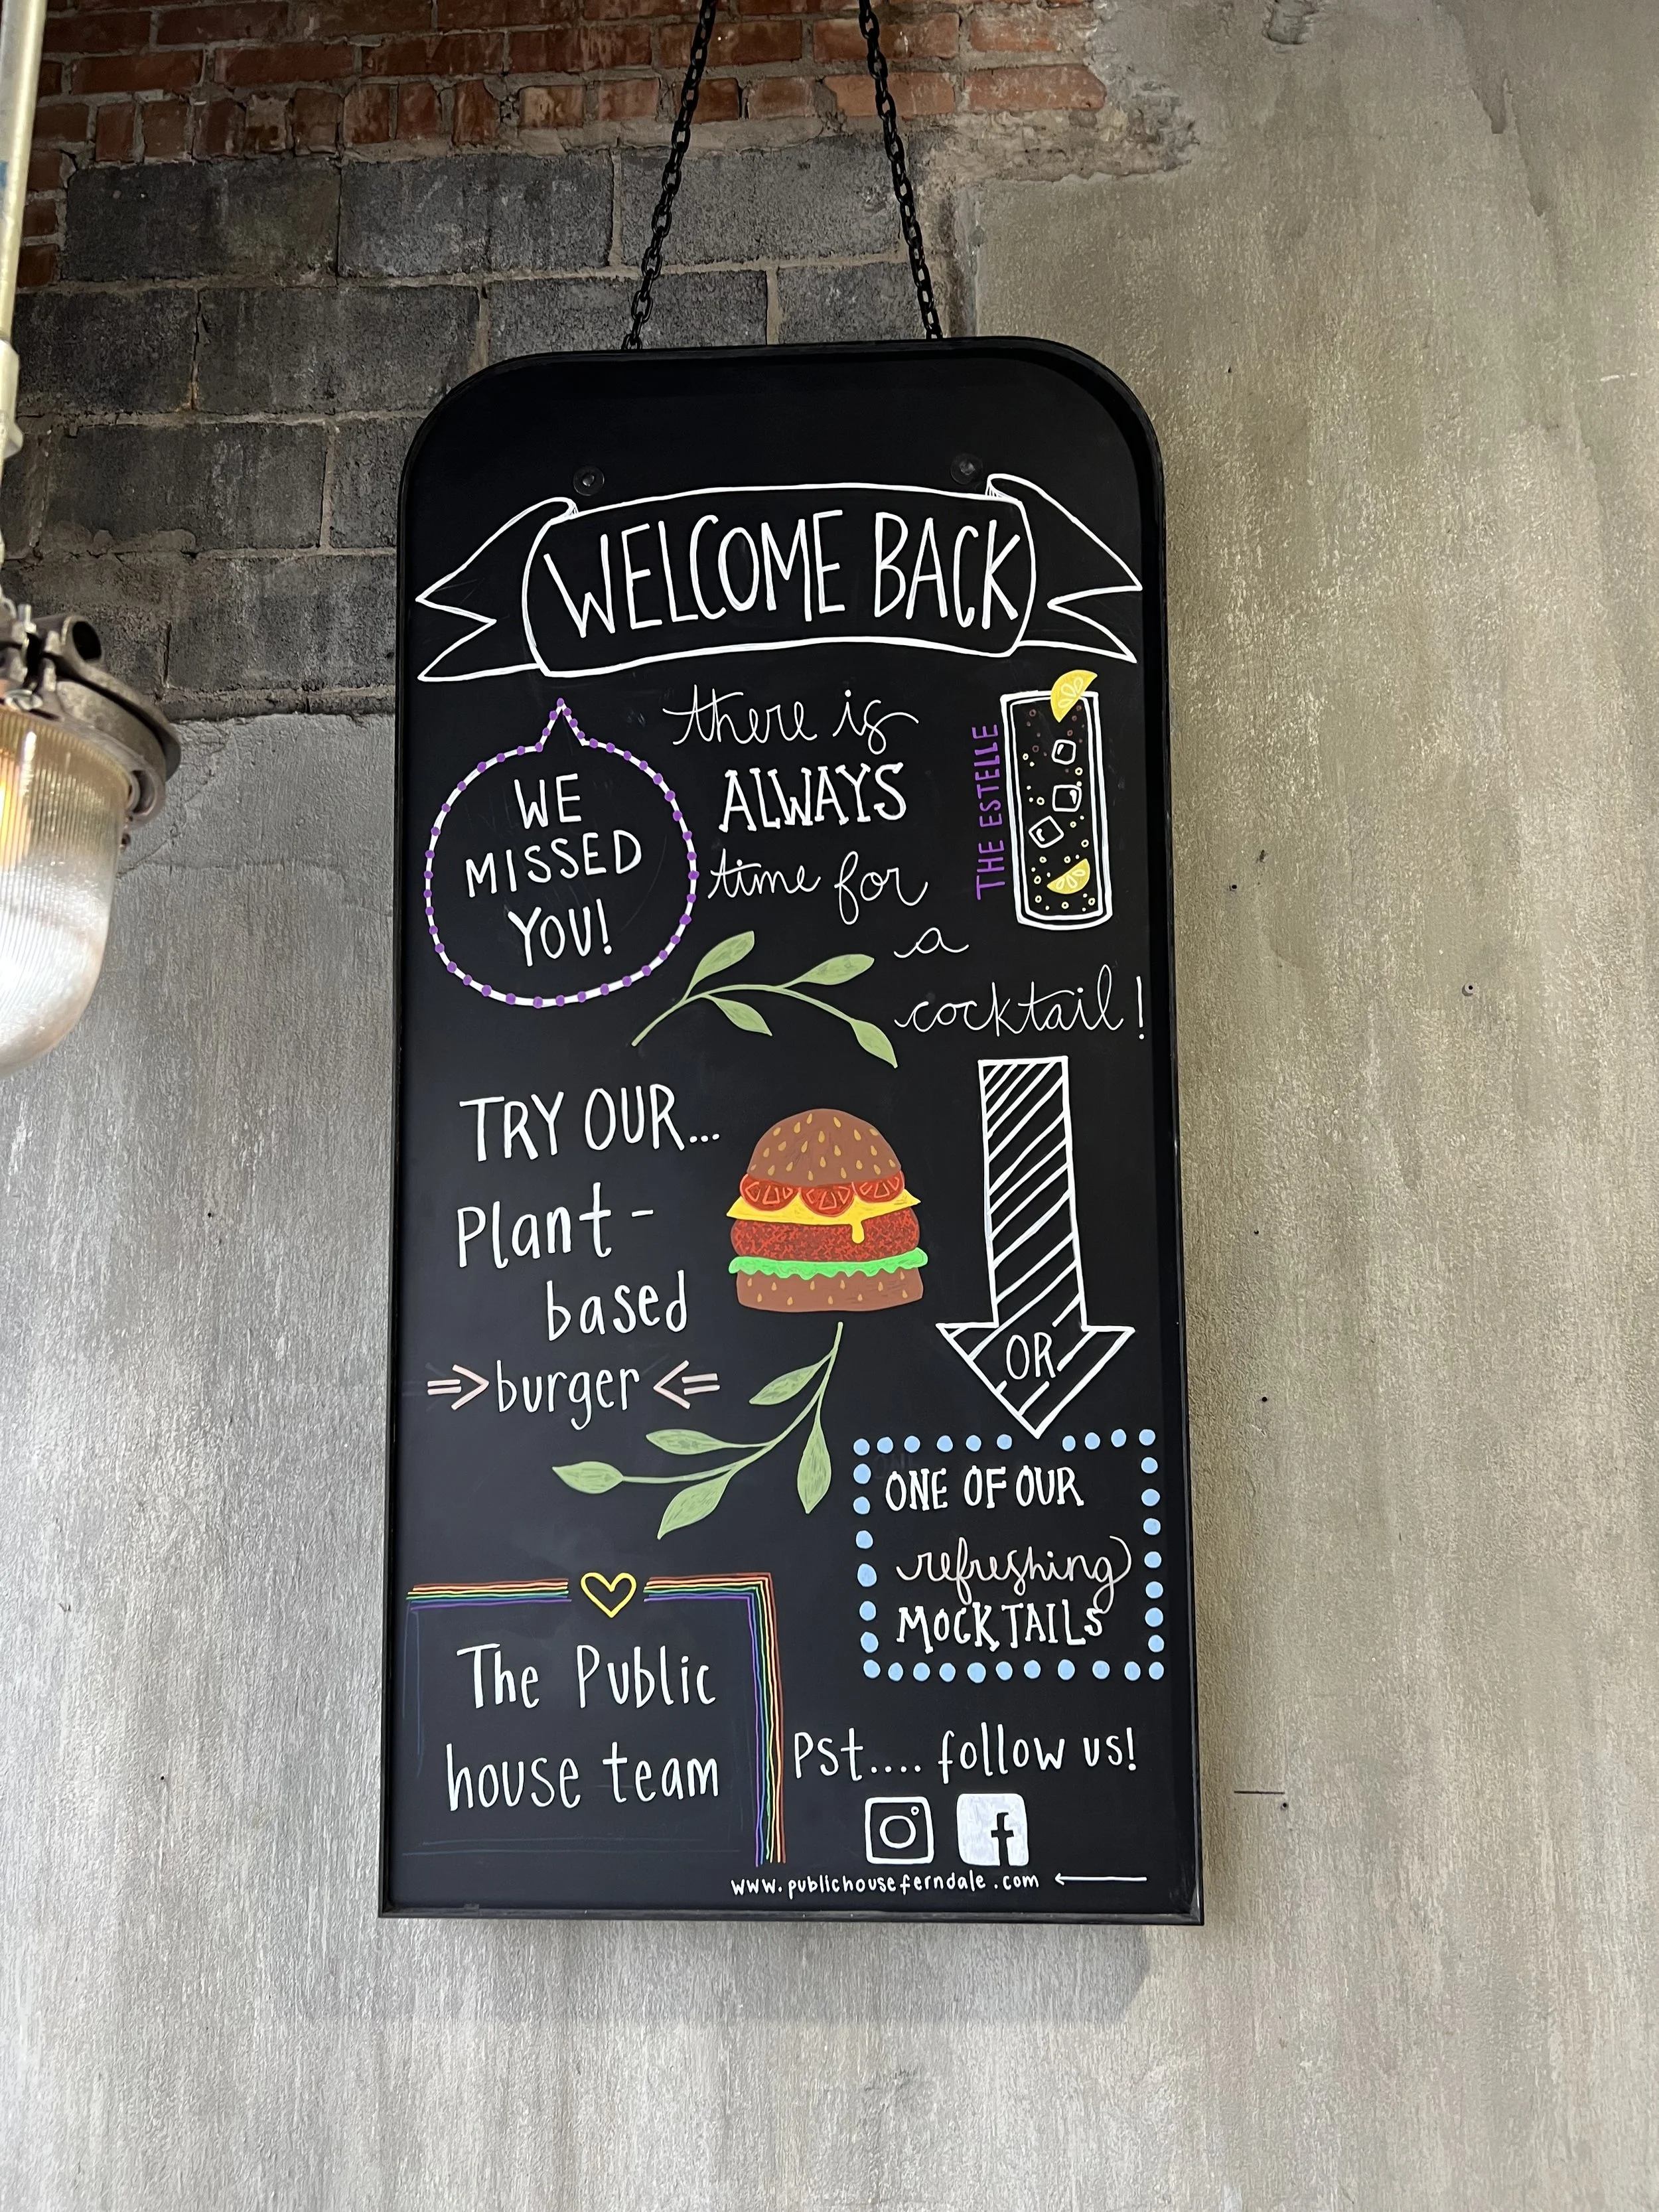 WELCOME BACK
WE
MISSED
YOU!
there is
ALWAYS
time for
a
cocktail!
THE ESTELLE
TRY OUR...
Plant-
based
=> burger <=
OR
ONE OF OUR
refreshing
MOCKTAILS
The Public
house team
Pst.... follow us!
f
www.publichouseferndale.com